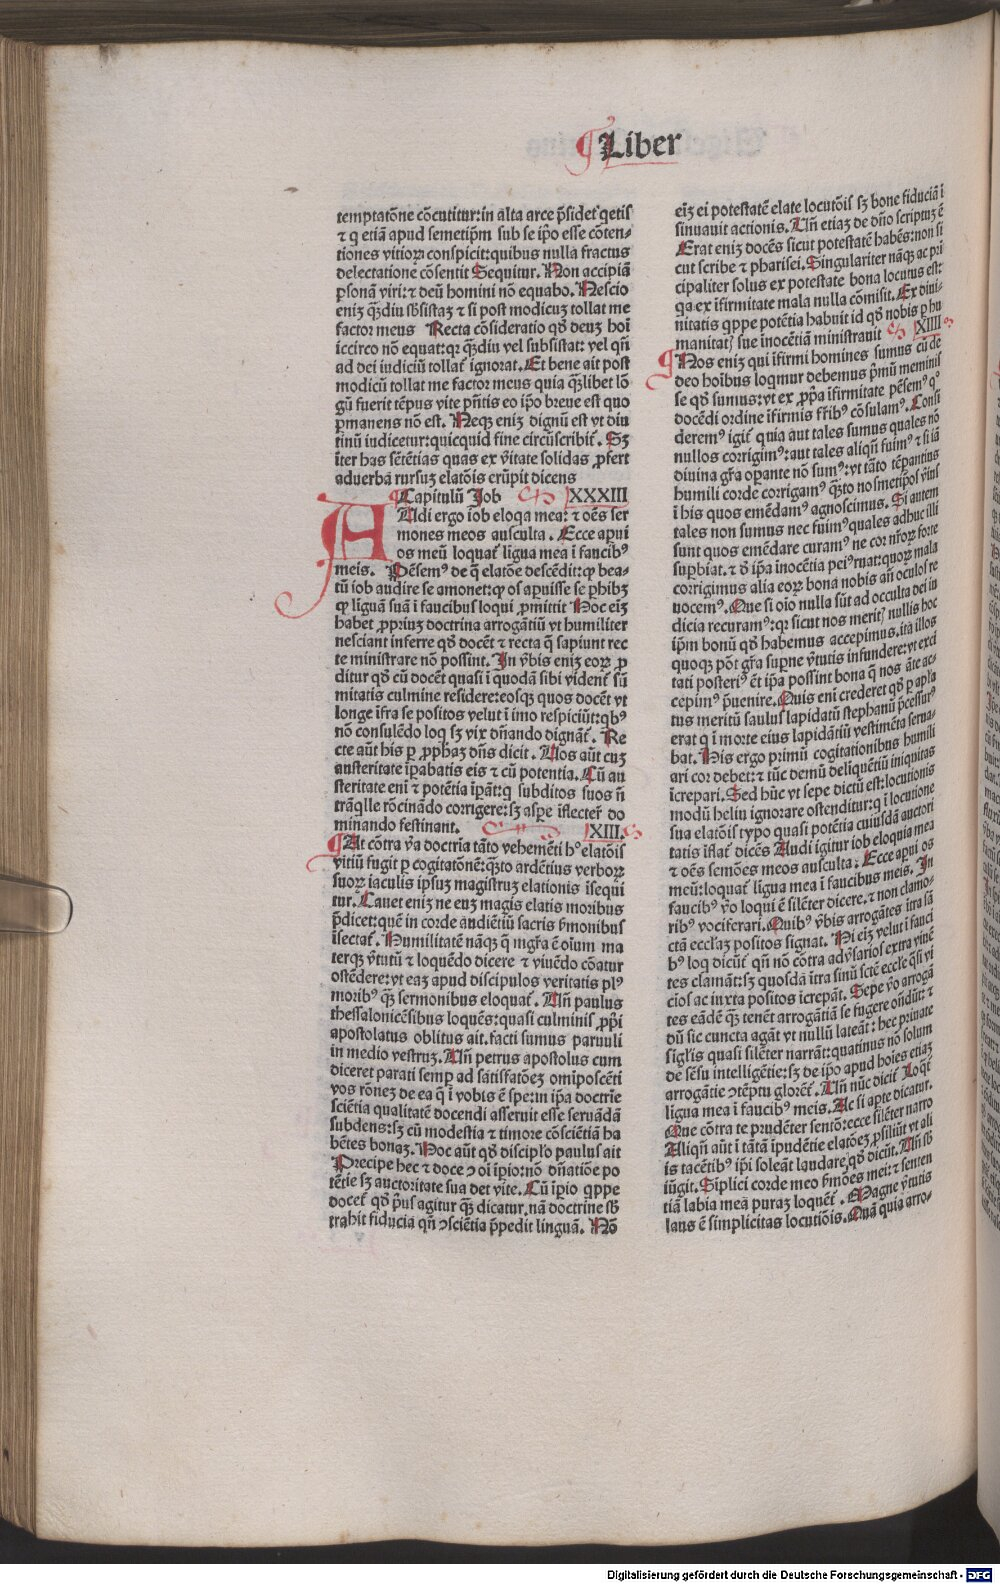 Liber
temptatōne cōcutitur: in alta arce p̄sidet qetis
⁊ q etiā apud semetip̄m sub se ip̄o esse cōten-
tiones vitioꝝ conspicit: quibus nulla fractus
delectatione cōsentit Sequitur. Non accipiā
ꝑsonā viri: ⁊ deū homini nō equabo. Nescio
eniꝫ q̄ꝫdiu sb̄sistaꝫ ⁊ si post modicuꝫ tollat me
factor meus Recta cōsideratio qd̄ deuꝫ hoī
iccirco nō equat: qꝛ q̄ꝫdiu vel subsistat: vel qn̄
ad dei iudiciū tollat᷑ ignorat. Et bene ait post
modicū tollat me factor meus quia q̄ꝫlibet lō
gū fuerit tēpus vite pn̄tis eo ip̄o breue est quo
ꝑmanens nō est. Neqꝫ eniꝫ dignū est vt diu
tinū iudicetur: quicquid fine circūscribit᷑. Sꝫ
īter has sētētias quas ex v̄itate solidas ꝓfert
aduerbā rursuꝫ elatōis erūpit dicens
Capitulū Job XXXIII
Audi ergo iob eloqa mea: ⁊ oēs ser
mones meos ausculta. Ecce aꝑui
os meū loquat᷑ ligua mea ī faucibꝰ
meis. Pēsemꝰ de q̄ elatōe descēdit: ꝙ bea-
tū iob audire se amonet: ꝙ os aꝑuisse se ꝑhibꝫ
ꝙ liguā suā ī faucibus loqui ꝓmittit Hoc eiꝫ
habet ꝓpriuꝫ doctrina arrogātiū vt humiliter
nesciant inferre qd̄ docēt ⁊ recta q̄ sapiunt rec
te ministrare nō possint. In v̄bis eniꝫ eoꝝ ꝓ
ditur qd̄ cū docēt quasi ī quodā sibi vident᷑ sū
mitatis culmine residere: eosqꝫ quos docēt vt
longe īfra se positos velut ī imo respiciūt: qbꝰ
nō consulēdo loq sꝫ vix dn̄ando dignāt᷑. Re
cte aūt his ꝑ ꝓphaꝫ dn̄s dicit. Uos aūt cuꝫ
austeritate īꝑabatis eis ⁊ cū potentia. Cū au
steritate eni ⁊ potētia īꝑāt: q subditos suos n̄
trāq̄lle rōcinādo corrigere: sꝫ asꝑe īflecter̄ do
minando festinant. XIII.
At cōtra v̄a doctria tāto vehemēti hꝰ elatōis
vitiū fugit ꝑ cogitatōnē: q̄ꝫto ardētius verboꝝ
suoꝝ iaculis ipsuꝫ magistruꝫ elationis īsequi
tur. Cauet eniꝫ ne euꝫ magis elatis moribus
p̄dicet: quē in corde audiētiū sacris s̄monibus
īsectat᷑. Humilitatē nāqꝫ q̄ mgr̄a ē oīum ma
terqꝫ v̄tutū ⁊ loquēdo dicere ⁊ viuēdo cōatur
ostēdere: vt eaꝫ apud discipulos veritatis plꝰ
moribꝰ q̄ꝫ sermonibus eloquat᷑. Un̄ paulus
thessalonicēsibus loquēs: quasi culminis ꝓp̄i
apostolatus oblitus ait. facti sumus paruuli
in medio vestruꝫ. Un̄ petrus apostolus cum
diceret parati semꝑ ad satisfatōeꝫ om̄iposcēti
vos rōneꝫ de ea q̄ ī vobis ē spe: in ip̄a doctrie
sciētia qualitatē docendi asseruit esse seruādā
subdens: sꝫ cū modestia ⁊ timore cōsciētiā ha
bētes bonaꝫ. Hoc aūt qd̄ disciplo paulus ait
Precipe hec ⁊ doce ɔ oī īpio: nō dn̄atiōe po
tētie sꝫ auctoritate sua det vite. Cū īpio qppe
docet᷑ qd̄ p̄us agitur q̄ꝫ dicatur. nā doctrine sb̄
trahit fiducia qn̄ ɔsciētia p̄pedit linguā. Nō
eīꝫ ei potestatē elate locutōis sꝫ bone fiduciā ī
sinuauit actionis. Un̄ etiaꝫ de dn̄o scriptuꝫ ē
Erat eniꝫ docēs sicut potestatē habēs: non si
cut scribe ⁊ pharisei. Singulariter nāqꝫ ac pri
cipaliter solus ex potestate bona locutus est:
qa ex īfirmitate mala nulla cōmisit. Ex diui-
nitatis qppe potētia habuit id qd̄ nobis ꝑ hu
manitatꝭ sue inocētiā ministrauit XIIII
Nos eniꝫ qui īfirmi homines sumus cū de
deo hoībus loqmur debemus pꝛmū meminis
se qd̄ sumus: vt ex ꝓp̄a īfirmitate pēsemꝰ qꝰ
docēdi ordine īfirmis fr̄ibꝰ cōsulamꝰ. Consi
deremꝰ igit᷑ quia aut tales sumus quales nō
nullos corrigimꝰ: aut tales aliqn̄ fuimꝰ ⁊ si iā
diuina gr̄a oꝑante nō sumꝰ: vt tāto tēꝑantius
humili corde corrigamꝰ q̄ꝫto nosmetip̄os v̄ius
ī his quos emēdamꝰ agnoscimus. Si autem
tales non sumus nec fuimꝰ quales adhuc illi
sunt quos emēdare curamꝰ ne cor nr̄oꝝ forte
suꝑbiat. ⁊ d̄ ip̄a inocētia peiꝰ ruat: quoꝝ mala
corrigimus alia eoꝝ bona nobis an̄ oculos re
uocemꝰ. Que si oīo nulla sūt ad occulta dei iu
dicia recuramꝰ: qꝛ sicut nos meritꝭ nullis hoc
ip̄m bonū qd̄ habemus accepimus. ita illos
quoqꝫ pōt gr̄a suꝑne v̄tutis infundere: vt exci
tati posteriꝰ ēt ip̄a possint bona q̄ nos āte ac
cepimꝰ p̄uenire. Quis enī crederet qd̄ ꝑ apl̄a
tus meritū saulus lapidatū stephanū p̄cessurꝰ
erat q ī morte eius lapidātiū vestimēta serua-
bat. His ergo primū cogitationibus humili
ari cor debet: ⁊ tūc demū deliquētiū iniquitas
īcrepari. Sed hūc vt sepe dictū est: locutionis
modū heliu ignorare ostenditur: q ī locutione
sua elatōis typo quasi potētia cuiusdā auctori
tatis īflat᷑ dicēs Audi igitur iob eloquia mea
⁊ oēs semōes meos ausculta: Ecce aꝑui os
meū: loquat᷑ ligua mea ī faucibus meis. In
faucibꝰ v̄o loqui ē silēter dicere. ⁊ non clamo-
ribꝰ vociferari. Quibꝰ v̄bis arrogātes ītra sā
ctā eccl̄iaꝫ positos signat. Hi eiꝫ velut ī fauci
bꝰ loq dicūt᷑ qn̄ nō cōtra adv̄sarios extra viuē
tes clamāt: sꝫ quosdā ītra sinū scē eccl̄e q̄si vi
cīos ac iuxta positos īcrepāt. Sepe v̄o arrogā
tes eādē q̄ꝫ tenēt arrogātiā se fugere oñdūt: ⁊
dū sic cuncta agāt vt nullū lateāt: hec priuate
sigl̄is quasi silēter narrāt: quatinus nō solum
de sēsu intelligētie: sꝫ de ip̄o apud hoīes etiaꝫ
arrogātie ɔtēptu glorēt᷑. Un̄ nūc dicit᷑ Loqt᷑
ligua mea ī faucibꝰ meis. Ac si apte dicatur.
Que cōtra te prudēter sentio: ecce silēter narro
Aliqn̄ aūt ī tātā īpudētie elatōeꝫ ꝓsiliūt vt ali
is tacētibꝰ ip̄i soleāt laudare qd̄ dicūt. Un̄ sb̄
iūgit. Siplici corde meo s̄mōes mei: ⁊ senten
tiā labia mea puraꝫ loquēt᷑. Magne v̄tutis
laus ē simplicitas locutiōis. Quā quia arro-
Digitalisierung gefördert durch die Deutsche Forschungsgemeinschaft - DFG